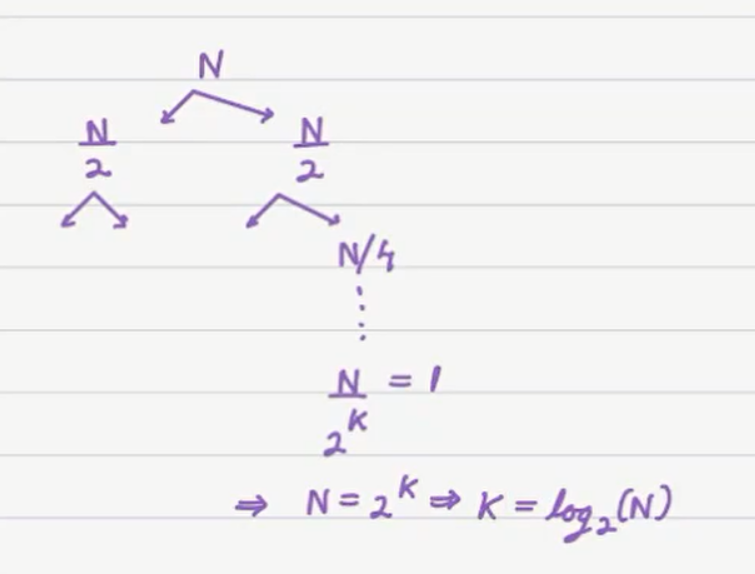 N
N/2 N/2
N/4
N/2^K = 1
⇒ N = 2^K ⇒ K = log₂(N)